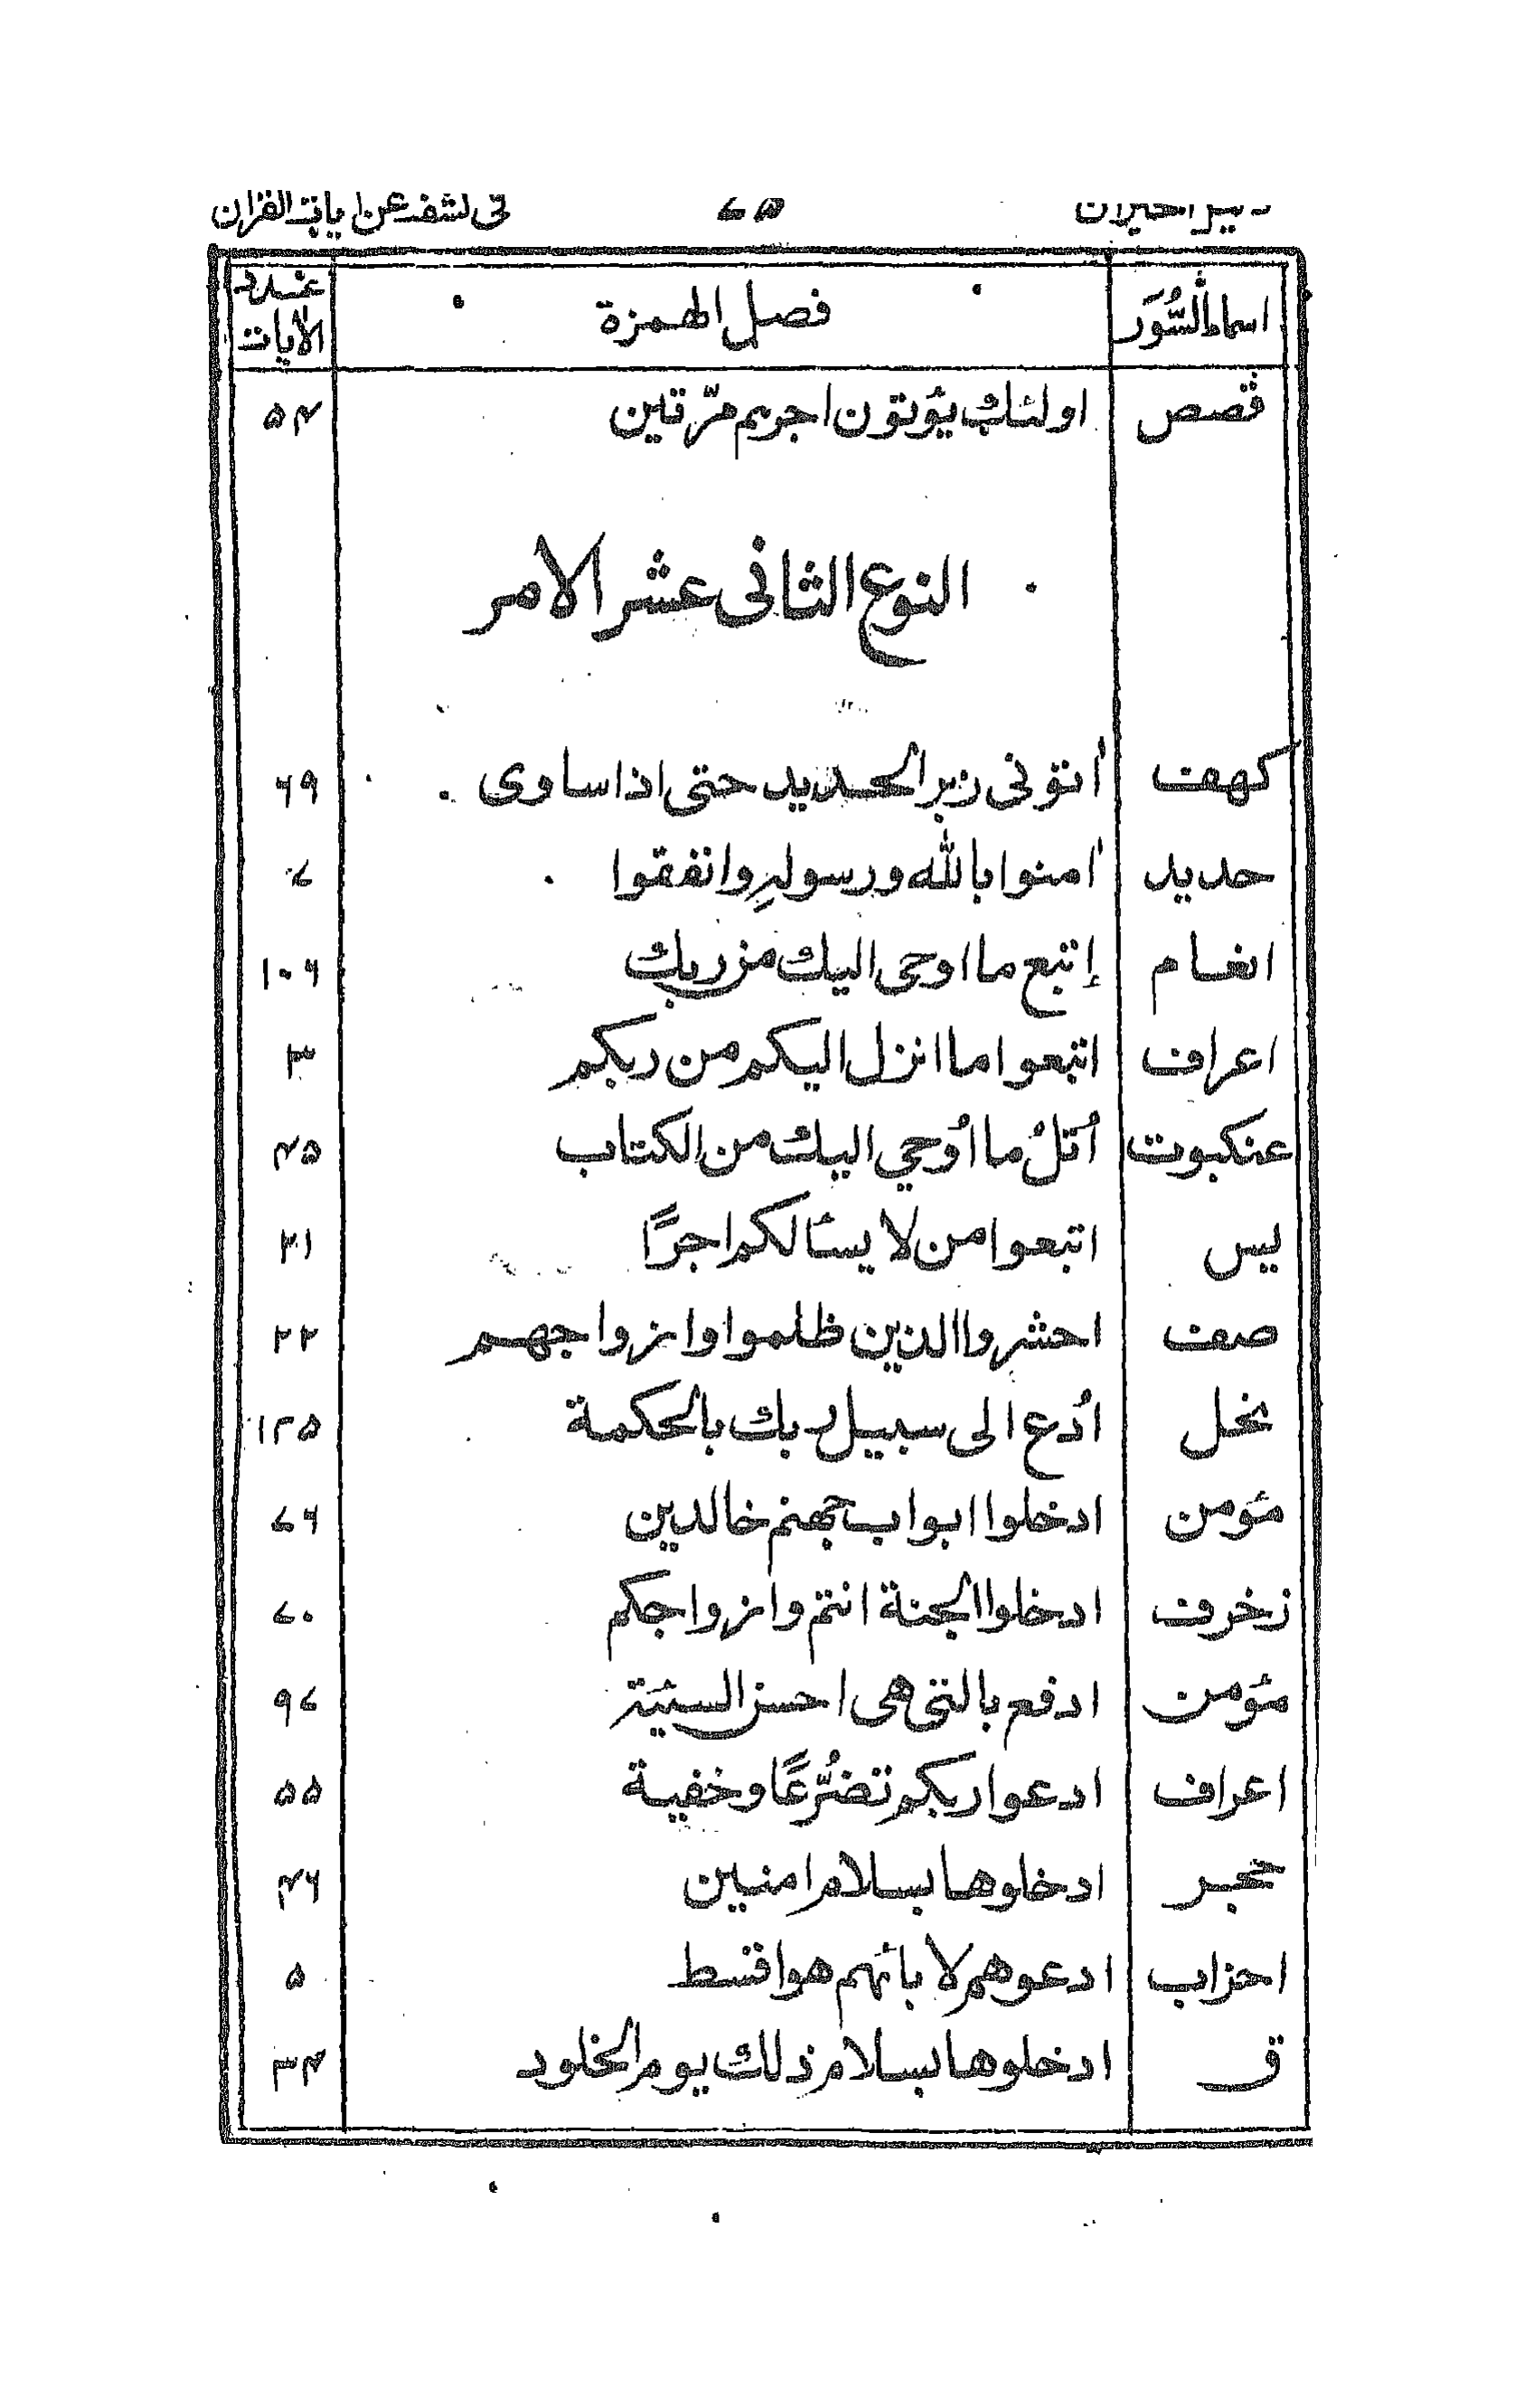 دليل الحيران ٧۵ فى الكشف عن ايات القران
اسماء السُّوَر فصل الهمزة عدد الايات
قصص اولئك يؤتون اجرهم مرّتين ۵۴
النوع الثانى عشر الامر
كهف اٰتونى زبر الحديد حتى اذا ساوى ٩۶
حديد اٰمنوا بالله ورسولهِ وانفقوا ٧
انعام إتبع ما اوحى اليك من ربك ١٠۶
اعراف اتبعوا ما انزل اليكم من ربكم ٣
عنكبوت اُتلُ ما اُوحي اليك من الكتاب ۴۵
يس اتبعوا من لا يسئالكم اجرًا ٢١
صف احشروا الذين ظلموا وازواجهم ٢٢
نحل ادُع الى سبيل ربك بالحكمة ١٢۵
مؤمن ادخلوا ابواب جهنم خالدين ٧۶
زخرف ادخلوا الجنة انتم وازواجكم ٧٠
مؤمن ادفع بالتى هى احسن السيئة ٩٧
اعراف ادعوا ربكم تضُرّعًا وخفية ۵۵
حجر ادخلوها بسلام امنين ۴۶
احزاب ادعوهم لابائهم هو اقسط ۵
ق ادخلوها بسلام ذلك يوم الخلود ٣۴